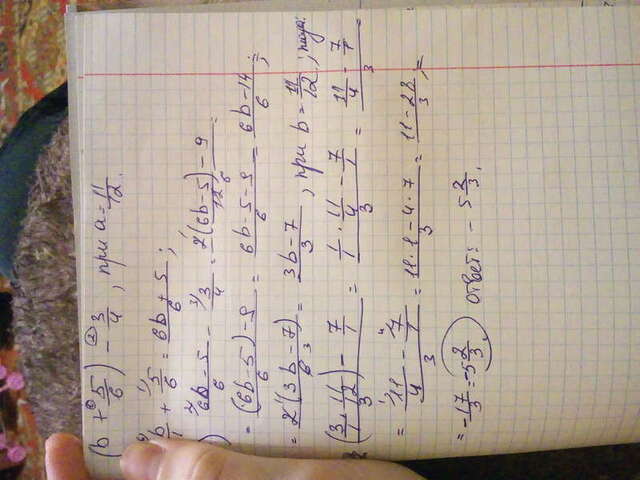 (b + 5/6) - 3/4, при a = 11/12.
b/1 + 5/6 = 6b + 5/6;
6b - 5/6 - 3/4 = 2(6b - 5) - 9/12 =
= (6b - 5) - 9/6 = 6b - 5 - 9/6 = 6b - 14/6;
= 2(3b - 7)/6 = 3b - 7/3, при b = 11/12;
(3/1 · 11/12) - 7/1/3 = 1/1 · 11/4 - 7/1/3 = 11/4 - 7/1/3
= 11/4 - 7/1/3 = 11 · 1 - 4 · 7/3 = 11 - 28/3; =
= -17/3 = -5 2/3. ответ: - 5 2/3.